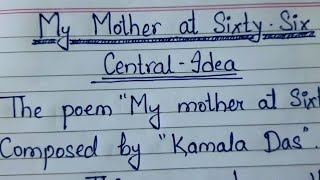 My Mother at Sixty-Six
Central-Idea
The poem "My mother at Sixt
Composed by "Kamala Das".